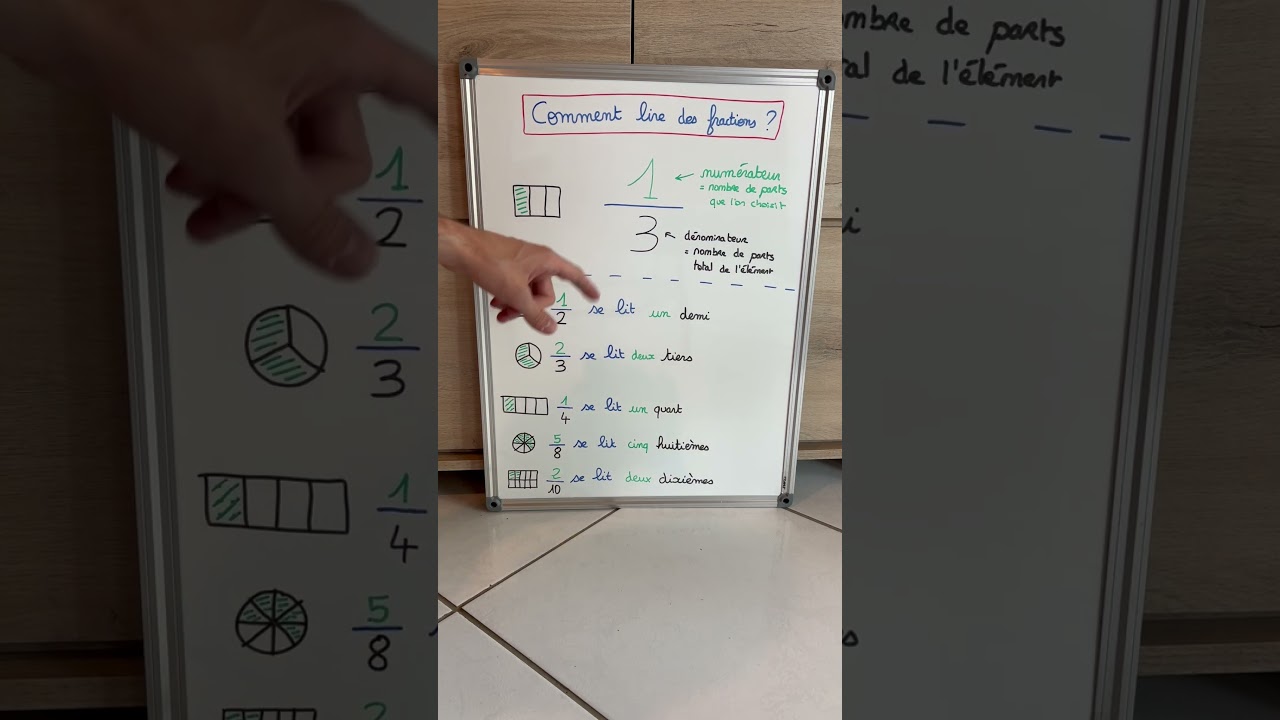 Comment lire des fractions ?
1 numérateur
= nombre de parts
que l'on choisit
3 dénominateur
= nombre de parts
total de l'élément
1/2 se lit un demi
2/3 se lit deux tiers
1/4 se lit un quart
5/8 se lit cinq huitièmes
2/10 se lit deux dixièmes
1/2
2/3
1/4
5/8
2
mbre de parts
al de l'élément
i
s